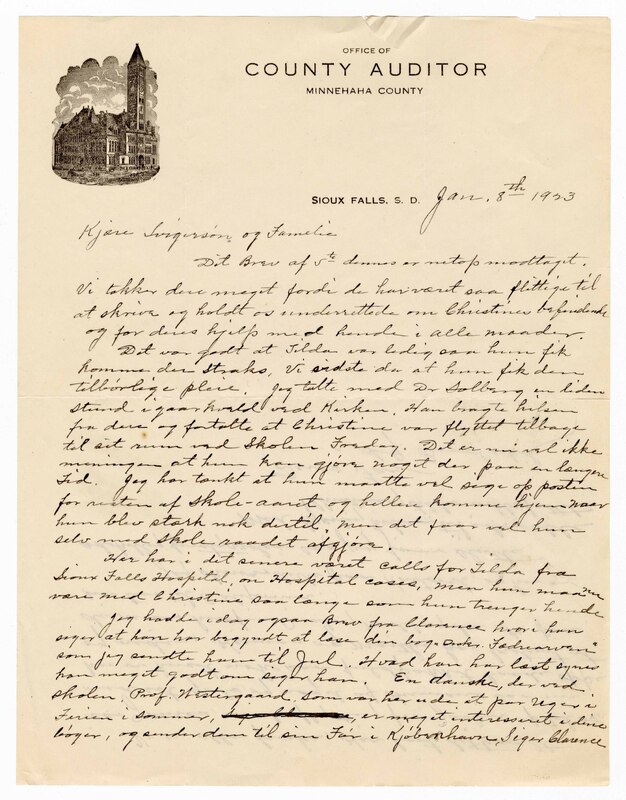 OFFICE OF
COUNTY AUDITOR
MINNEHAHA COUNTY
SIOUX FALLS, S. D. Jan. 8th 1923
Kjære Svigersøn og Familie
Dit Brev af 5te dennes er netop modtaget.
Vi takker dere meget fordi de har været saa flittige til
at skrive og holdt os underrettede om Christines befindende
og for deres hjelp med hende i alle maader.
Det var godt at Tilda var ledig saa hun fik
komme der straks, Vi vidste da at hun fik den
tilbörlige pleie. Jeg talte med Dr Solberg en liden
stund igaarkveld ved Kirken. Han bragte hilsen
fra dere og fortalte at Christine var flyttet tilbage
til sit rum ved Skolen Freday. Det er nu vel ikke
meningen at hun kan gjøre noget der paa en længere
Tid. Jeg har tænkt at hun maatte vel sige op posten
for resten af Skole-aaret og hellere komme hjem naar
hun blev stærk nok dertil, men det faar vel hun
selv med Skole raadet afgjøre.
Her har i det senere været calls for Tilda fra
Sioux Falls Hospital, on Hospital cases, men hun maa
være med Christine saa længe som hun trenger hende
Jeg hadde idag ogsaa Brev fra Clarence hvori han
siger at han har begyndt at læse din bog, "Fædrearven"
som jeg sendte ham til Jul. Hvad han har læst synes
han meget godt om siger han. En danske, der ved
skolen, Prof. Westergaard, som var her ude et par Uger i
Ferien i sommer, er meget interesseret i dine
bøger, og sender dem til sin Far i Kjøbenhavn, siger Clarence